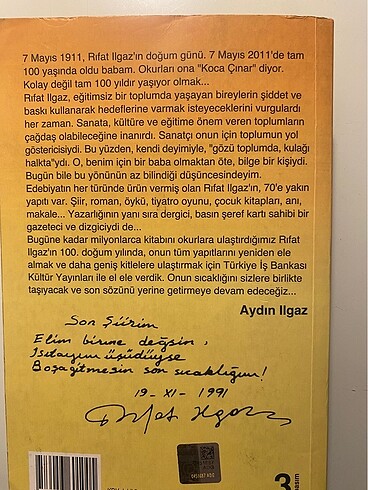 7 Mayıs 1911, Rıfat Ilgaz'ın doğum günü. 7 Mayıs 2011'de tam
100 yaşında oldu babam. Okurları ona "Koca Çınar" diyor.
Kolay değil tam 100 yıldır yaşıyor olmak...
Rıfat Ilgaz, eğitimsiz bir toplumda yaşayan bireylerin şiddet ve
baskı kullanarak hedeflerine varmak isteyeceklerini vurgulardı
her zaman. Sanata, kültüre ve eğitime önem veren toplumların
çağdaş olabileceğine inanırdı. Sanatçı onun için toplumun yol
göstericisiydi. Bu yüzden, kendi deyimiyle, "gözü toplumda, kulağı
halkta"ydı. O, benim için bir baba olmaktan öte, bilge bir kişiydi.
Bugün bile bu yönünün az bilindiği düşüncesindeyim.
Edebiyatın her türünde ürün vermiş olan Rıfat Ilgaz'ın, 70'e yakın
yapıtı var. Şiir, roman, öykü, tiyatro oyunu, çocuk kitapları, anı,
makale... Yazarlığının yanı sıra dergici, basın şeref kartı sahibi bir
gazeteci ve dizgiciydi de...
Bugüne kadar milyonlarca kitabını okurlara ulaştırdığımız Rıfat
Ilgaz'ın 100. doğum yılında, onun tüm yapıtlarını yeniden ele
almak ve daha geniş kitlelere ulaştırmak için Türkiye İş Bankası
Kültür Yayınları ile el ele verdik. Onun sıcaklığını sizlere birlikte
taşıyacak ve son sözünü yerine getirmeye devam edeceğiz...
Aydın Ilgaz
Son Şiirim
Elim birine değsin,
Isıtayım üşüdüyse
Boşa gitmesin son sıcaklığım!
19-XI-1991
Rıfat Ilgaz
3